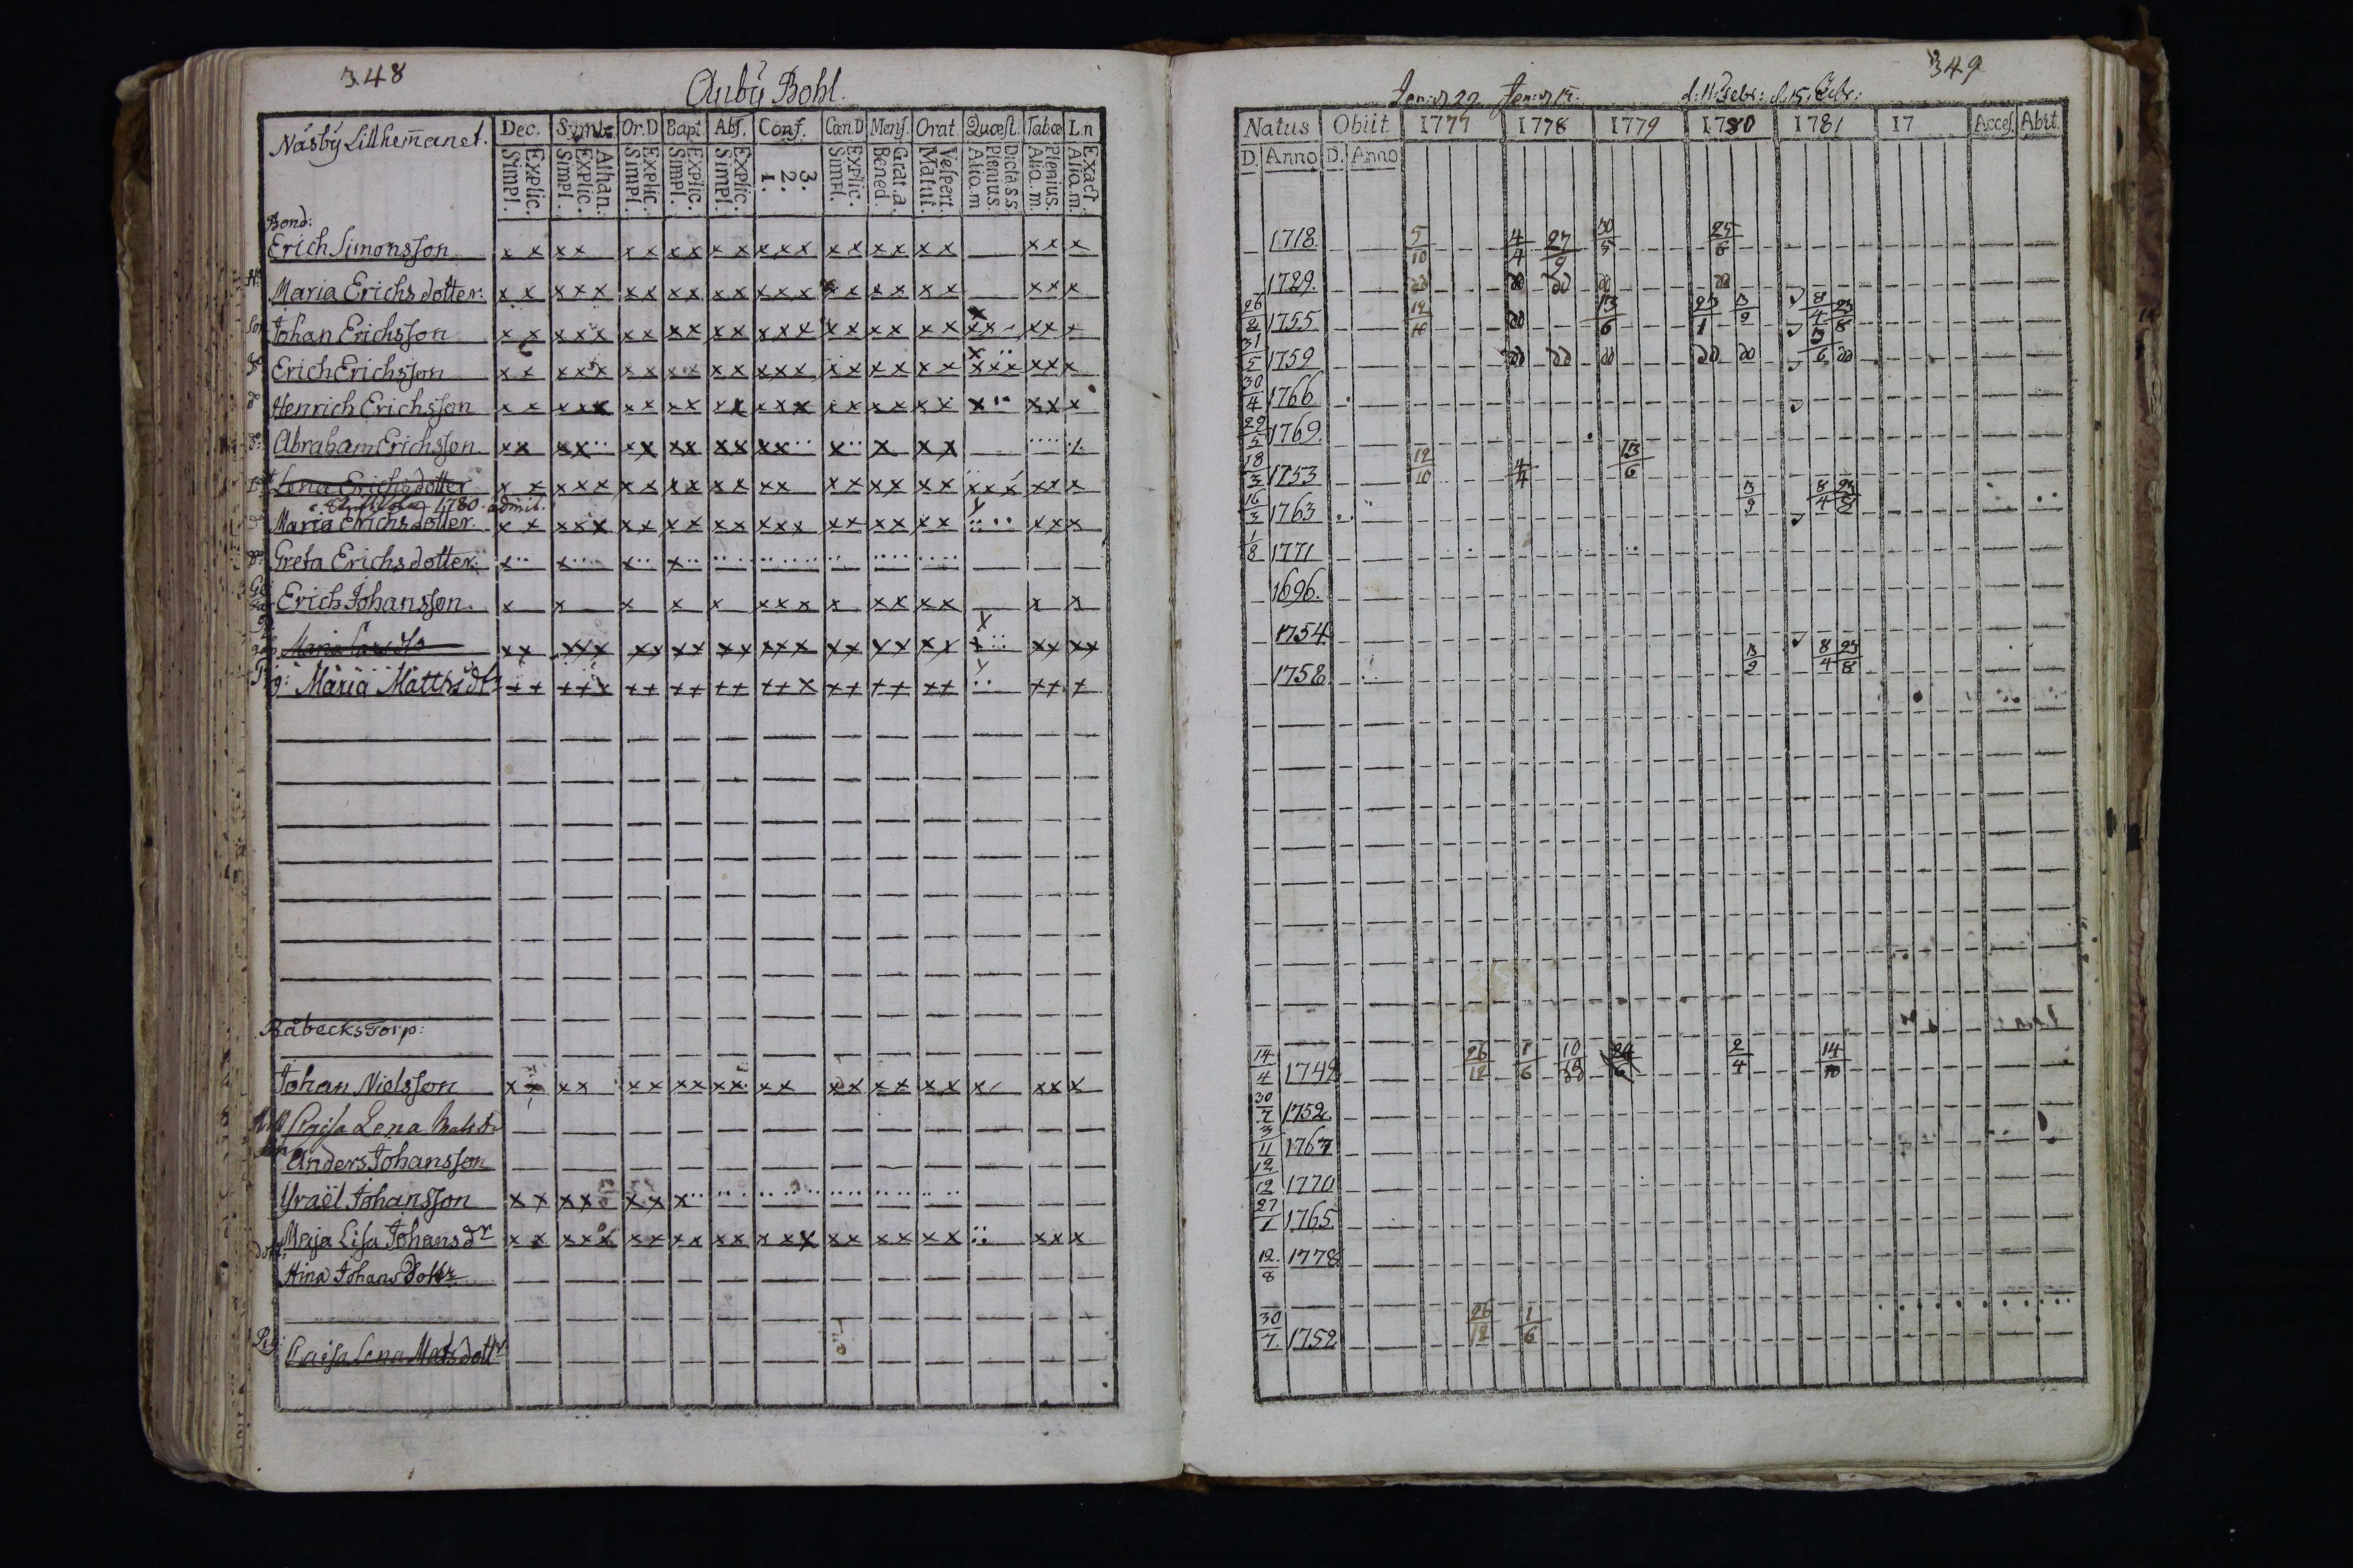 348
Auby Bohl.
Näsby Lillhem̄anet.
Dec. Symb. Or.D Bapt. Abs. Conf. Cœn.D Mens. Orat. Quæst. Tabœ L.n
Simpl. Explic. Simpl. Explic. Athan. Simpl. Explic. Simpl. Explic. Simpl. Explic. 1. 2. 3. Simpl. Explic. Bened. Grat.a. Matut. Vespert. Alio.m Plenius. Dicta.s.s. Alio.m. Plenius. Alio.m. Exact.
Bond:
Erich Simonsson
H: Maria Erichs dotter:
Son Johan Erichsson
d:o Erich Erichsson
d Henrich Erichsson
d: Abraham Erichsson
Lena Erichsdotter
1780. admit.
Maria Erichsdotter.
Greta Erichsdotter.
Erich Johansson.
Maria
Maria Matthsdr
Råbecks Torp:
Johan Nielsson
Caisa Lena
Anders Johansson
Yraël Johansson
dott. Maja Lisa Johansdr
Stina Johans Dottr
Pig: Caisa Lena Matsdottr
349
Jan: d 29 Jan: d 12. d. 11. Febr: d. 15. Febr:
Natus Obiit 1777 1778 1779 1780 1781 17 Acces. Abit.
D. Anno D. Anno
1718. 5/10 4/4 27/9 30/5 25/6
1729. do do do do do
26/2 1755 12/10 do 13/6 23/1 3/9 8/4 23/8
31/5 1759 do do do do do 3/6 do
30/4 1766
29/5 1769.
18/3 1753 12/10 4/4 13/6
16/3 1763 3/9 8/4 23/8
1/8 1771
1696.
1754
1758. 3/9 8/4 23/8
14/4 1749 26/12 1/6 10/10 2/4 14/10
30/7 1752.
3/11 1767
12/12 1770
27/1 1765.
12/8 1778
30/7. 1752 26/12 1/6